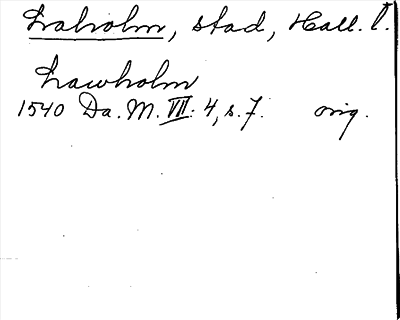 Laholm, stad, Hall. l.
Lawholm
1540 Da. M. VII: 4, s. 7. orig.